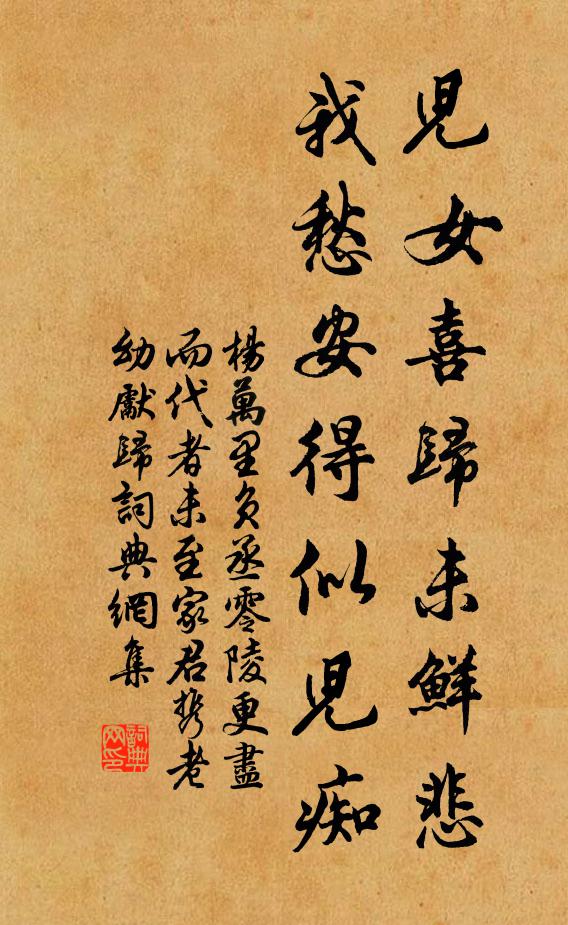 兒女喜歸未鮮悲
我愁安得似兒痴
楊萬里負丞零陵更盡
而代者未至家君攜老
幼獻歸詞典網集
詞典網印